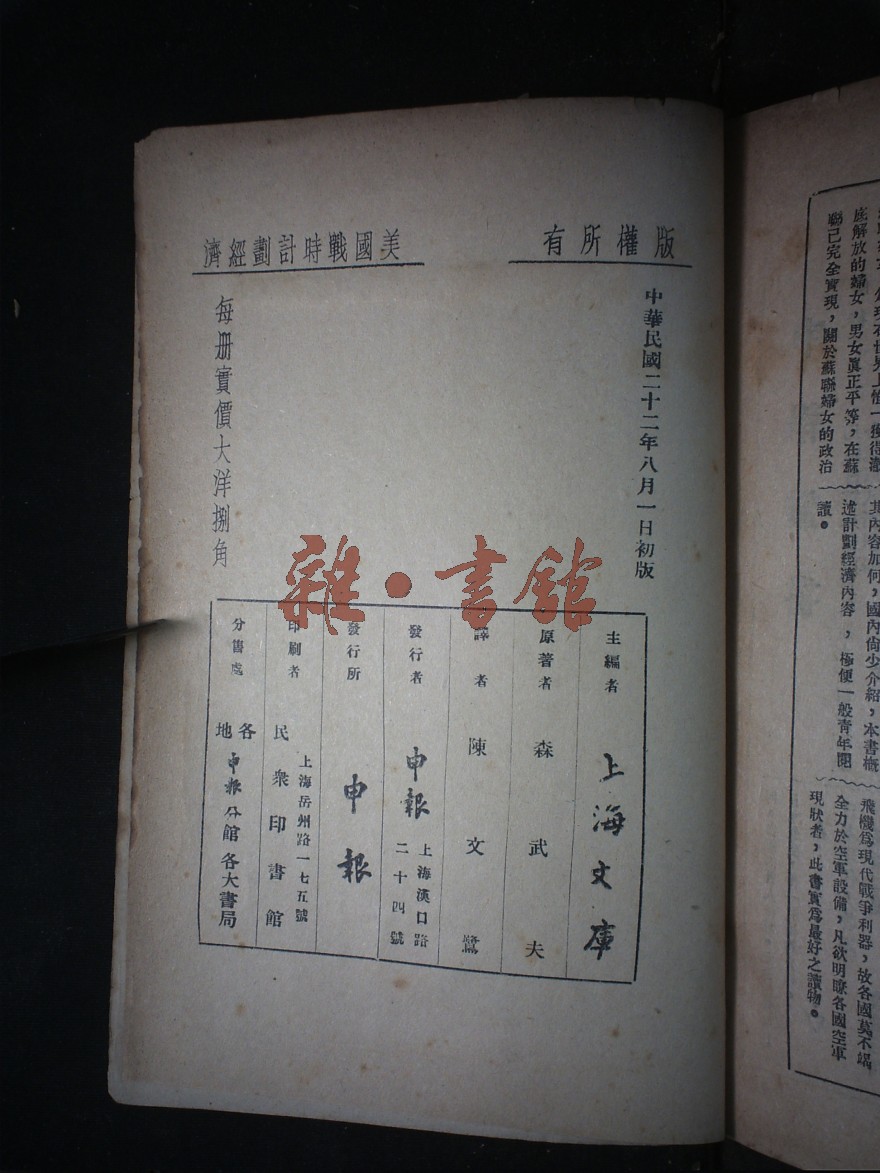 版權所有
美國戰時計劃經濟
中華民國二十二年八月一日初版
每册實價大洋捌角
主編者 上海文庫
原著者 森武夫
譯者 陳文鷺
發行者 申報 上海漢口路二十四號
發行所 申報
印刷者 上海岳州路一七五號 民衆印書館
分售處 各地申報分館各大書局
雜·書館
底解放的婦女，男女眞正平等，在蘇
聯已完全實現，關於蘇聯婦女的政治
其內容如何，國內尙少介紹，本書槪
述計劃經濟內容，極便一般靑年閱
讀。
飛機爲現代戰爭利器，故各國莫不竭
全力於空軍設備，凡欲明瞭各國空軍
現狀者，此書實爲最好之讀物。